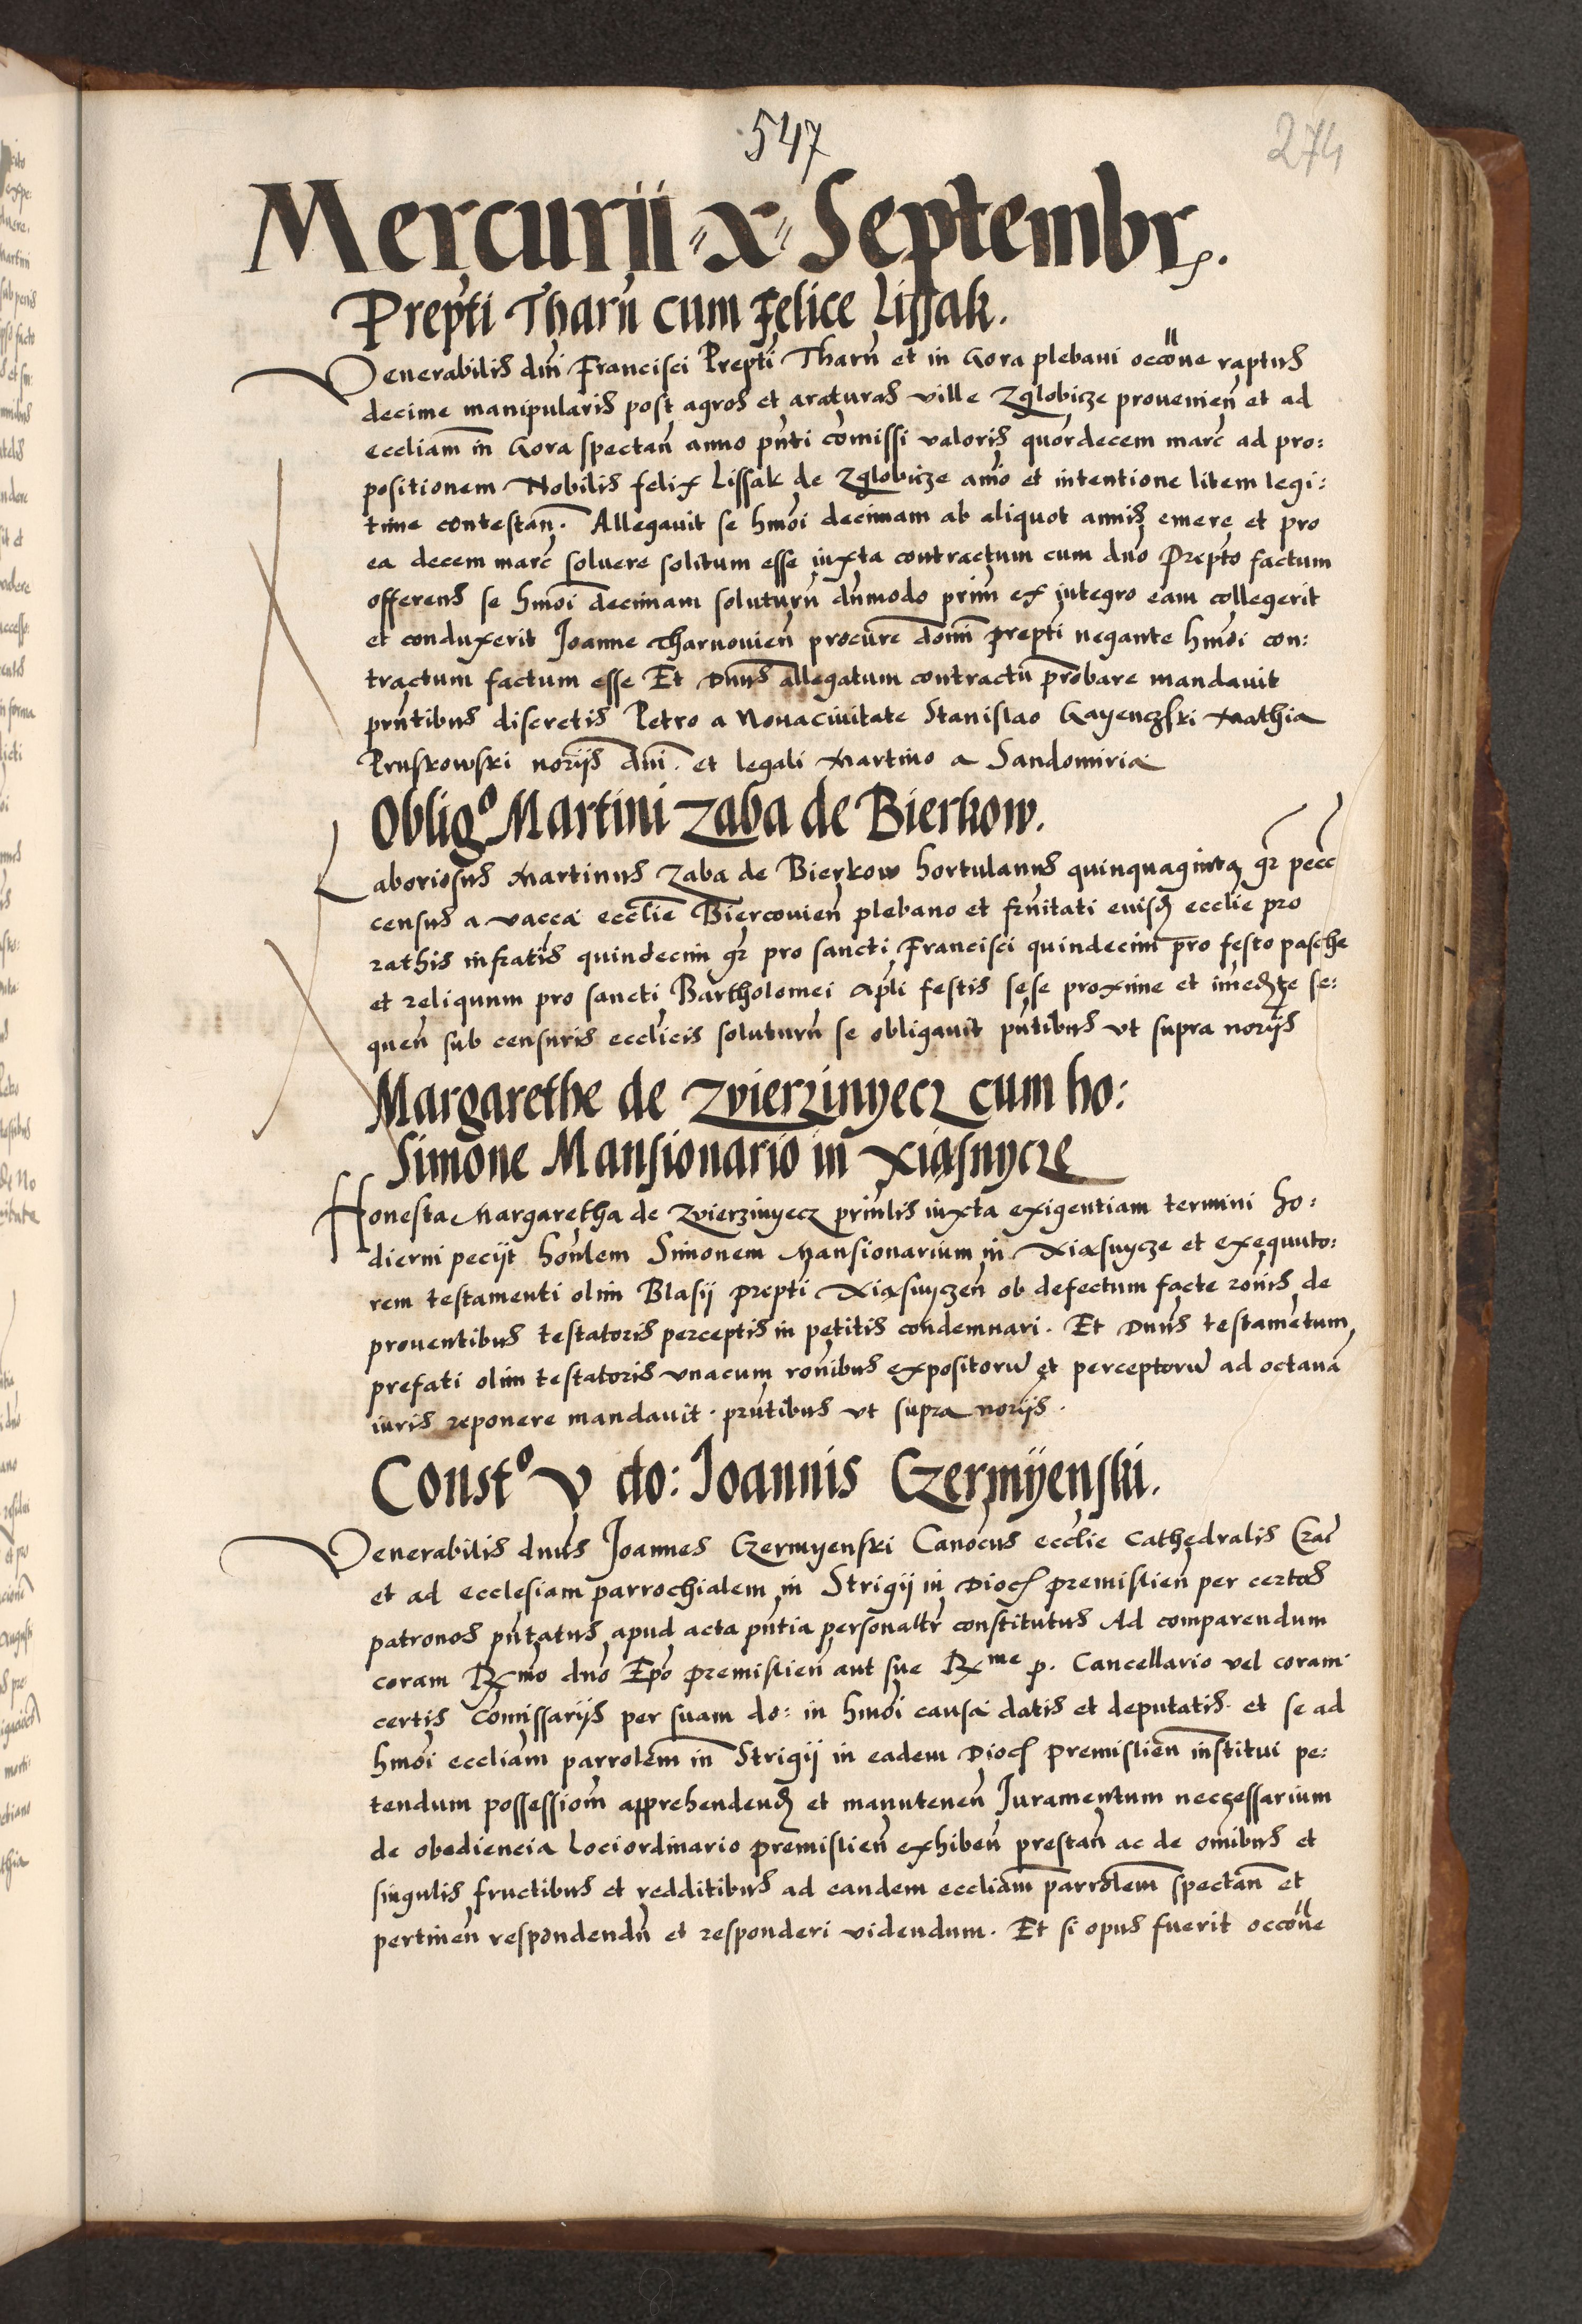 547
274
Mercurii x Septembr.
Prepti Tharn cum Felice Lissak.
Venerabilis dni Francisci Prepti Tharn et in Gora plebani occone raptus
decime manipularis post agros et araturas ville Zglobicze provenien et ad
eccliam in Gora spectan anno pnti comissi valoris quordecem marc ad pro:
positionem Nobilis felix Lissak de Zglobicze amo et intentione litem legi:
time contestan. Allegavit se hmoi decimam ab aliquot annis emere et pro
ea decem marc solvere solitum esse iuxta contractum cum dno Prepto factum
offerens se hmoi decimam soluturn dnmodo prim ex integro eam collegerit
et conduxerit Joanne Tharnovien procure domi prepti negante hmoi con:
tractum factum esse Et Dnus allegatum contractu probare mandavit
prntibus discretis Petro a Novacivitate Stanislao Gayenczski Mathia
Pruskowski norijs dni. et legali Martino a Sandomiria
Obligo Martini Zaba de Bierkow.
Laboriosus Martinus Zaba de Bierkow hortulanus quinquaginta gr pecc
census a vacca ecclie Biercovien plebano et frnitati euisd ecclie pro
rathis infratis quindecim gr pro sancti Francisci quindecim pro festo pasche
et reliquum pro sancti Bartholomei Apli festis sese proxime et imedte se:
quen sub censuris ecclicis soluturn se obligavit pntibus ut supra norijs
Margarethe de Zvierzinyecz cum ho:
Simone Mansionario in Xiasnycze
Honesta Margaretha de Zvierzinyecz prinlis iuxta exigentiam termini ho:
dierni pecijt honlem Simonem Mansionarium in Xiasnycze et exequuto:
rem testamenti olim Blasij prepti Xiasnyczen ob defectum facte ronis de
proventibus testatoris perceptis in petitis condemnari. Et Dnus testametum
prefati olim testatoris unacum ronibus expositoru et perceptoru ad octava
iuris reponere mandavit. prntibus ut supra norijs.
Consto V do: Joannis Czermyenski.
Venerabilis dnus Joannes Czermyenski Canocus ecclie Cathedralis Crac
et ad ecclesiam parrochialem in Strigij in Dioc premislien per certos
patronos pntatus apud acta pntia personaltr constitutus Ad comparendum
coram Rmo dno Epo premislien aut sue Rme p. Cancellario vel coram
certis Comissarijs per suam do: in hmoi causa datis et deputatis. et se ad
hmoi eccliam parrolem in Strigij in eadem Dioc premislien institui pe:
tendum possessiom apprehendend et manutenen Juramentum necessarium
de obediencia Lociordinario premislien exhiben prestan ac de omibus et
singulis fructibus et redditibus ad eandem eccliam parrolem spectan et
pertinen respondendn et responderi videndum. Et si opus fuerit occone